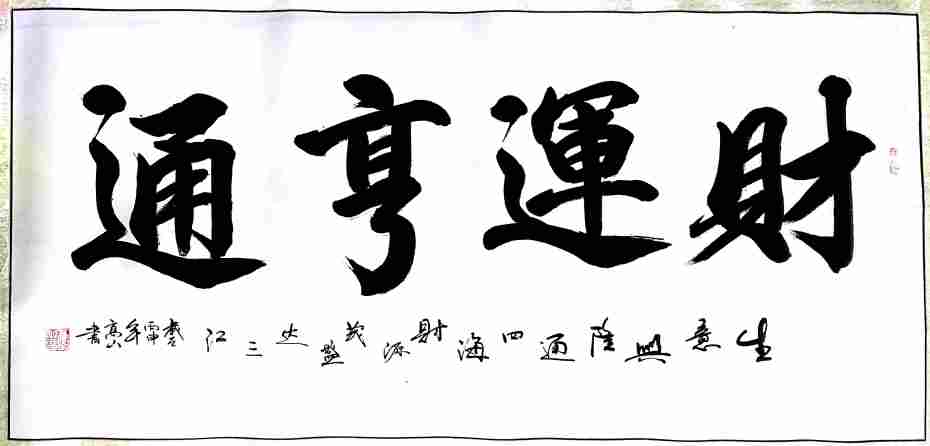 財運亨通
生意興隆通四海財源茂盛达三江
書